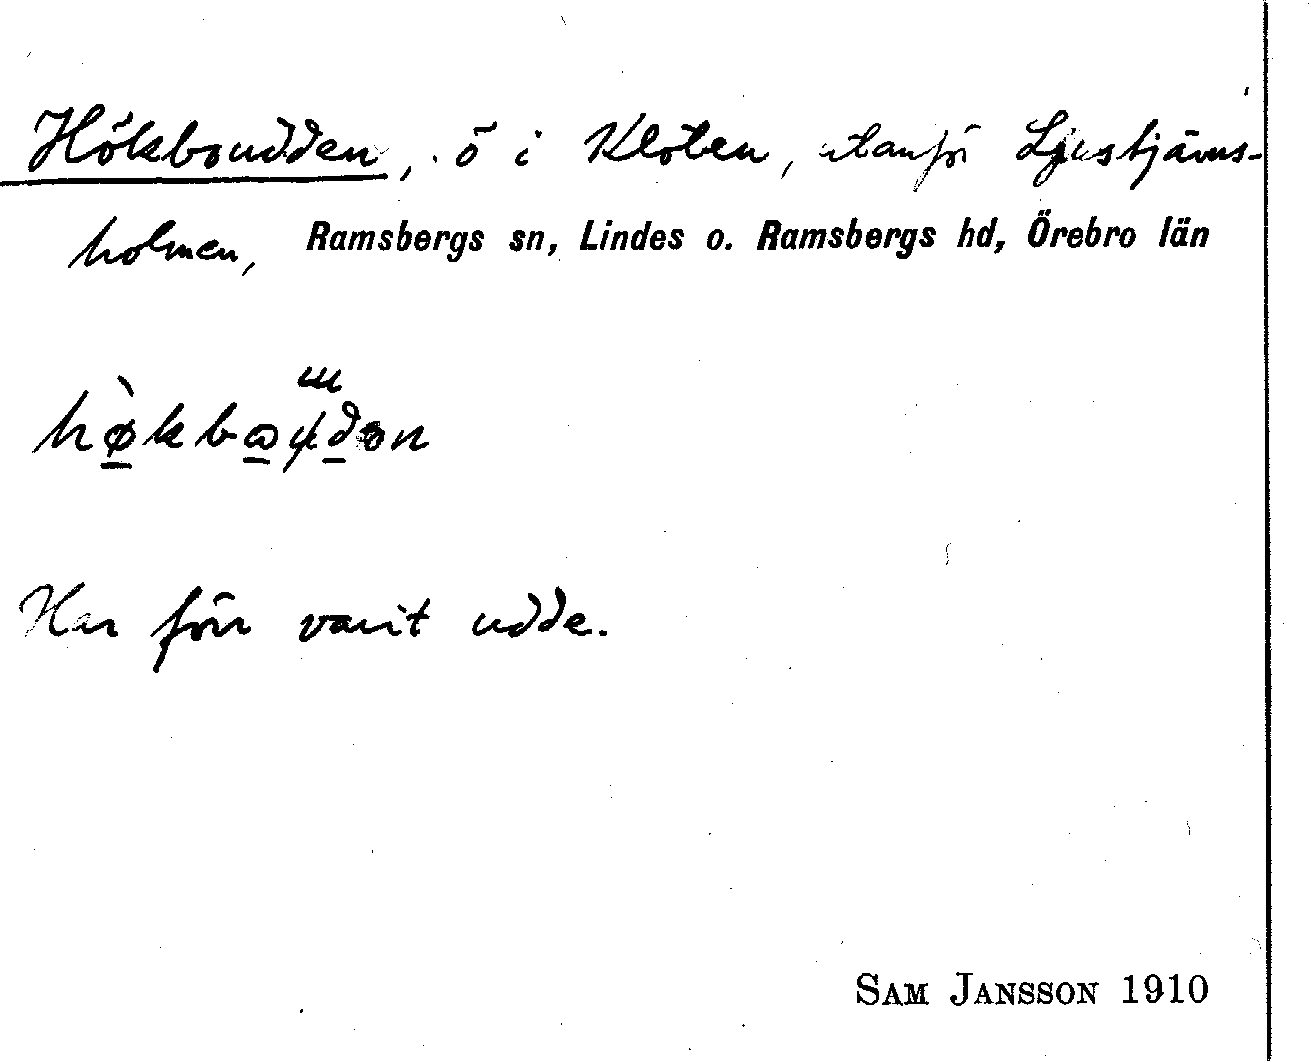 Hökboudden, ö i Kloten, utanför Ljustjärns-
holmen, Ramsbergs sn, Lindes o. Ramsbergs hd, Örebro län
Har förr varit udde.
SAM JANSSON 1910